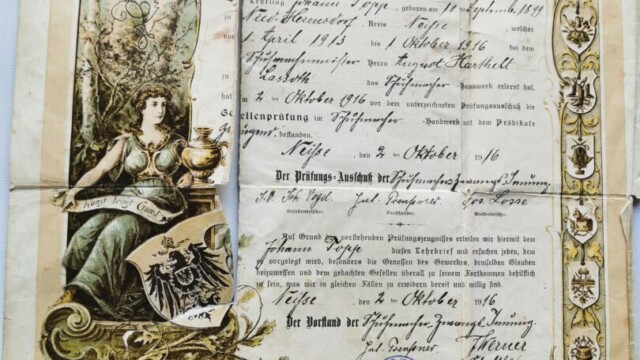 Lehrling Johann Poppe, geboren am 10 September 1899
Kreis Neisse, welcher
1. April 1913 bis 1 Oktober 1916 bei dem
Schuhmachermeister Herrn August Barthelt
Lassoth das Schuhmacher-Handwerk erlernt hat,
zu
hat am 2 ten Oktober 1916 vor dem unterzeichneten Prüfungsausschuß die
Gesellenprüfung im Schuhmacher-Handwerk mit dem Prädikate
bestanden.
Neisse, den 2 ten Oktober 1916
Der Prüfungs-Ausschuß der Schuhmacher-Zwangs-Innung
Joh. Vogel Jul. Jos. Losse
Vorsitzender.
Kunst bringt Gunst
Auf Grund des vorstehenden Prüfungszeugnisses erteilen wir hiermit dem
Johann Poppe diesen Lehrbrief und ersuchen jeden, dem
er vorgelegt wird, besonders die Genossen des Gewerkes, demselben Glauben
beizumessen und dem gedachten Gesellen überall zu seinem Fortkommen behilflich
zu sein, was wir in gleichen Fällen zu erwidern bereit und willig sind.
Neisse, den 2 ten Oktober 1916
Der Vorstand der Schuhmacher-Zwangs-Innung
Jul. Werner